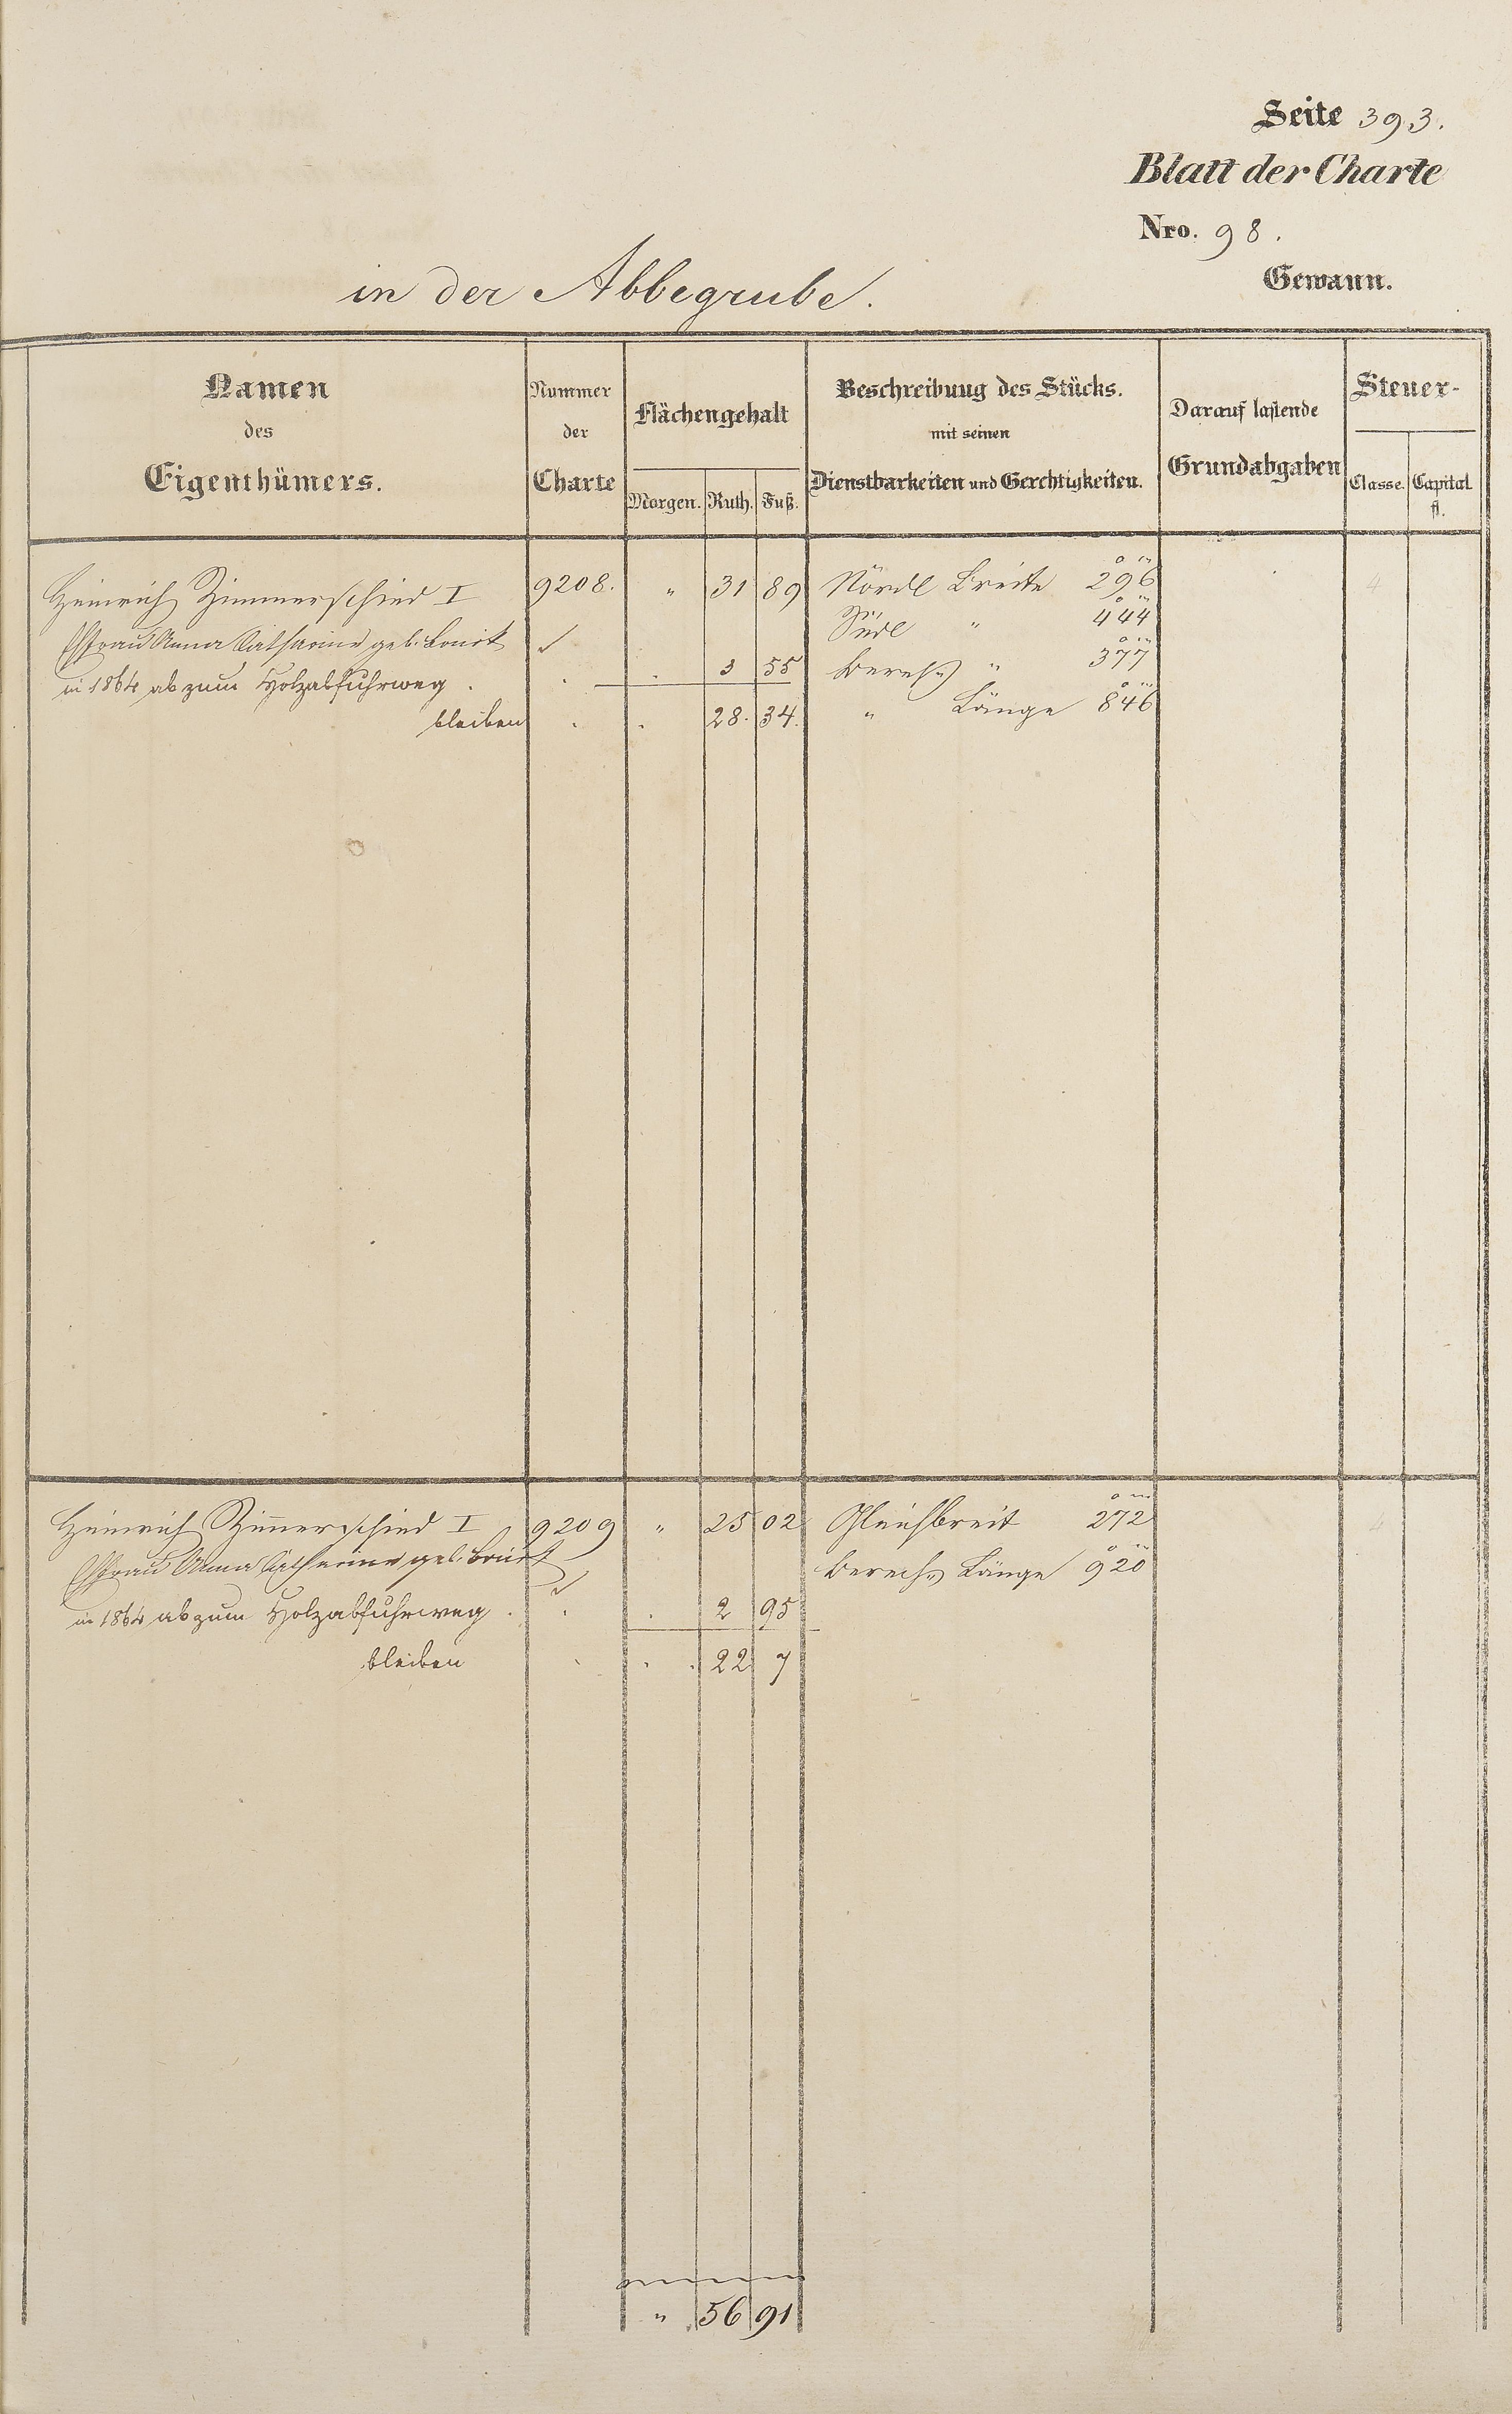 Seite 393.
Blatt der Charte
Nro. 98.
in der Abbegrube. Gewann.
Namen des Eigenthümers.
Nummer der Charte
Flächengehalt
Morgen. Ruth. Fuß.
Beschreibung des Stücks.
mit seinen
Dienstbarkeiten und Gerechtigkeiten.
Darauf lastende
Grundabgaben
Steuer-
Classe. Capital fl.
Heinrich Zimmerschied I 9208. " 31 89 Nördl Breite 296
Ehefrau Anna Catharine geb. Südl " 444
in 1864 ab zum Holzabfuhrweg . . . 3 55 Berech. " 377
bleiben . . 28. 34. " Länge 846
4
Heinrich Zimmerschied I 9209 " 25 02 Gleichbreit 272
Ehefrau Anna Catharine geb. Berech. Länge 920
in 1864 ab zum Holzabfuhrweg . . . 2 95
bleiben . . . 22 7
4
" 56 91